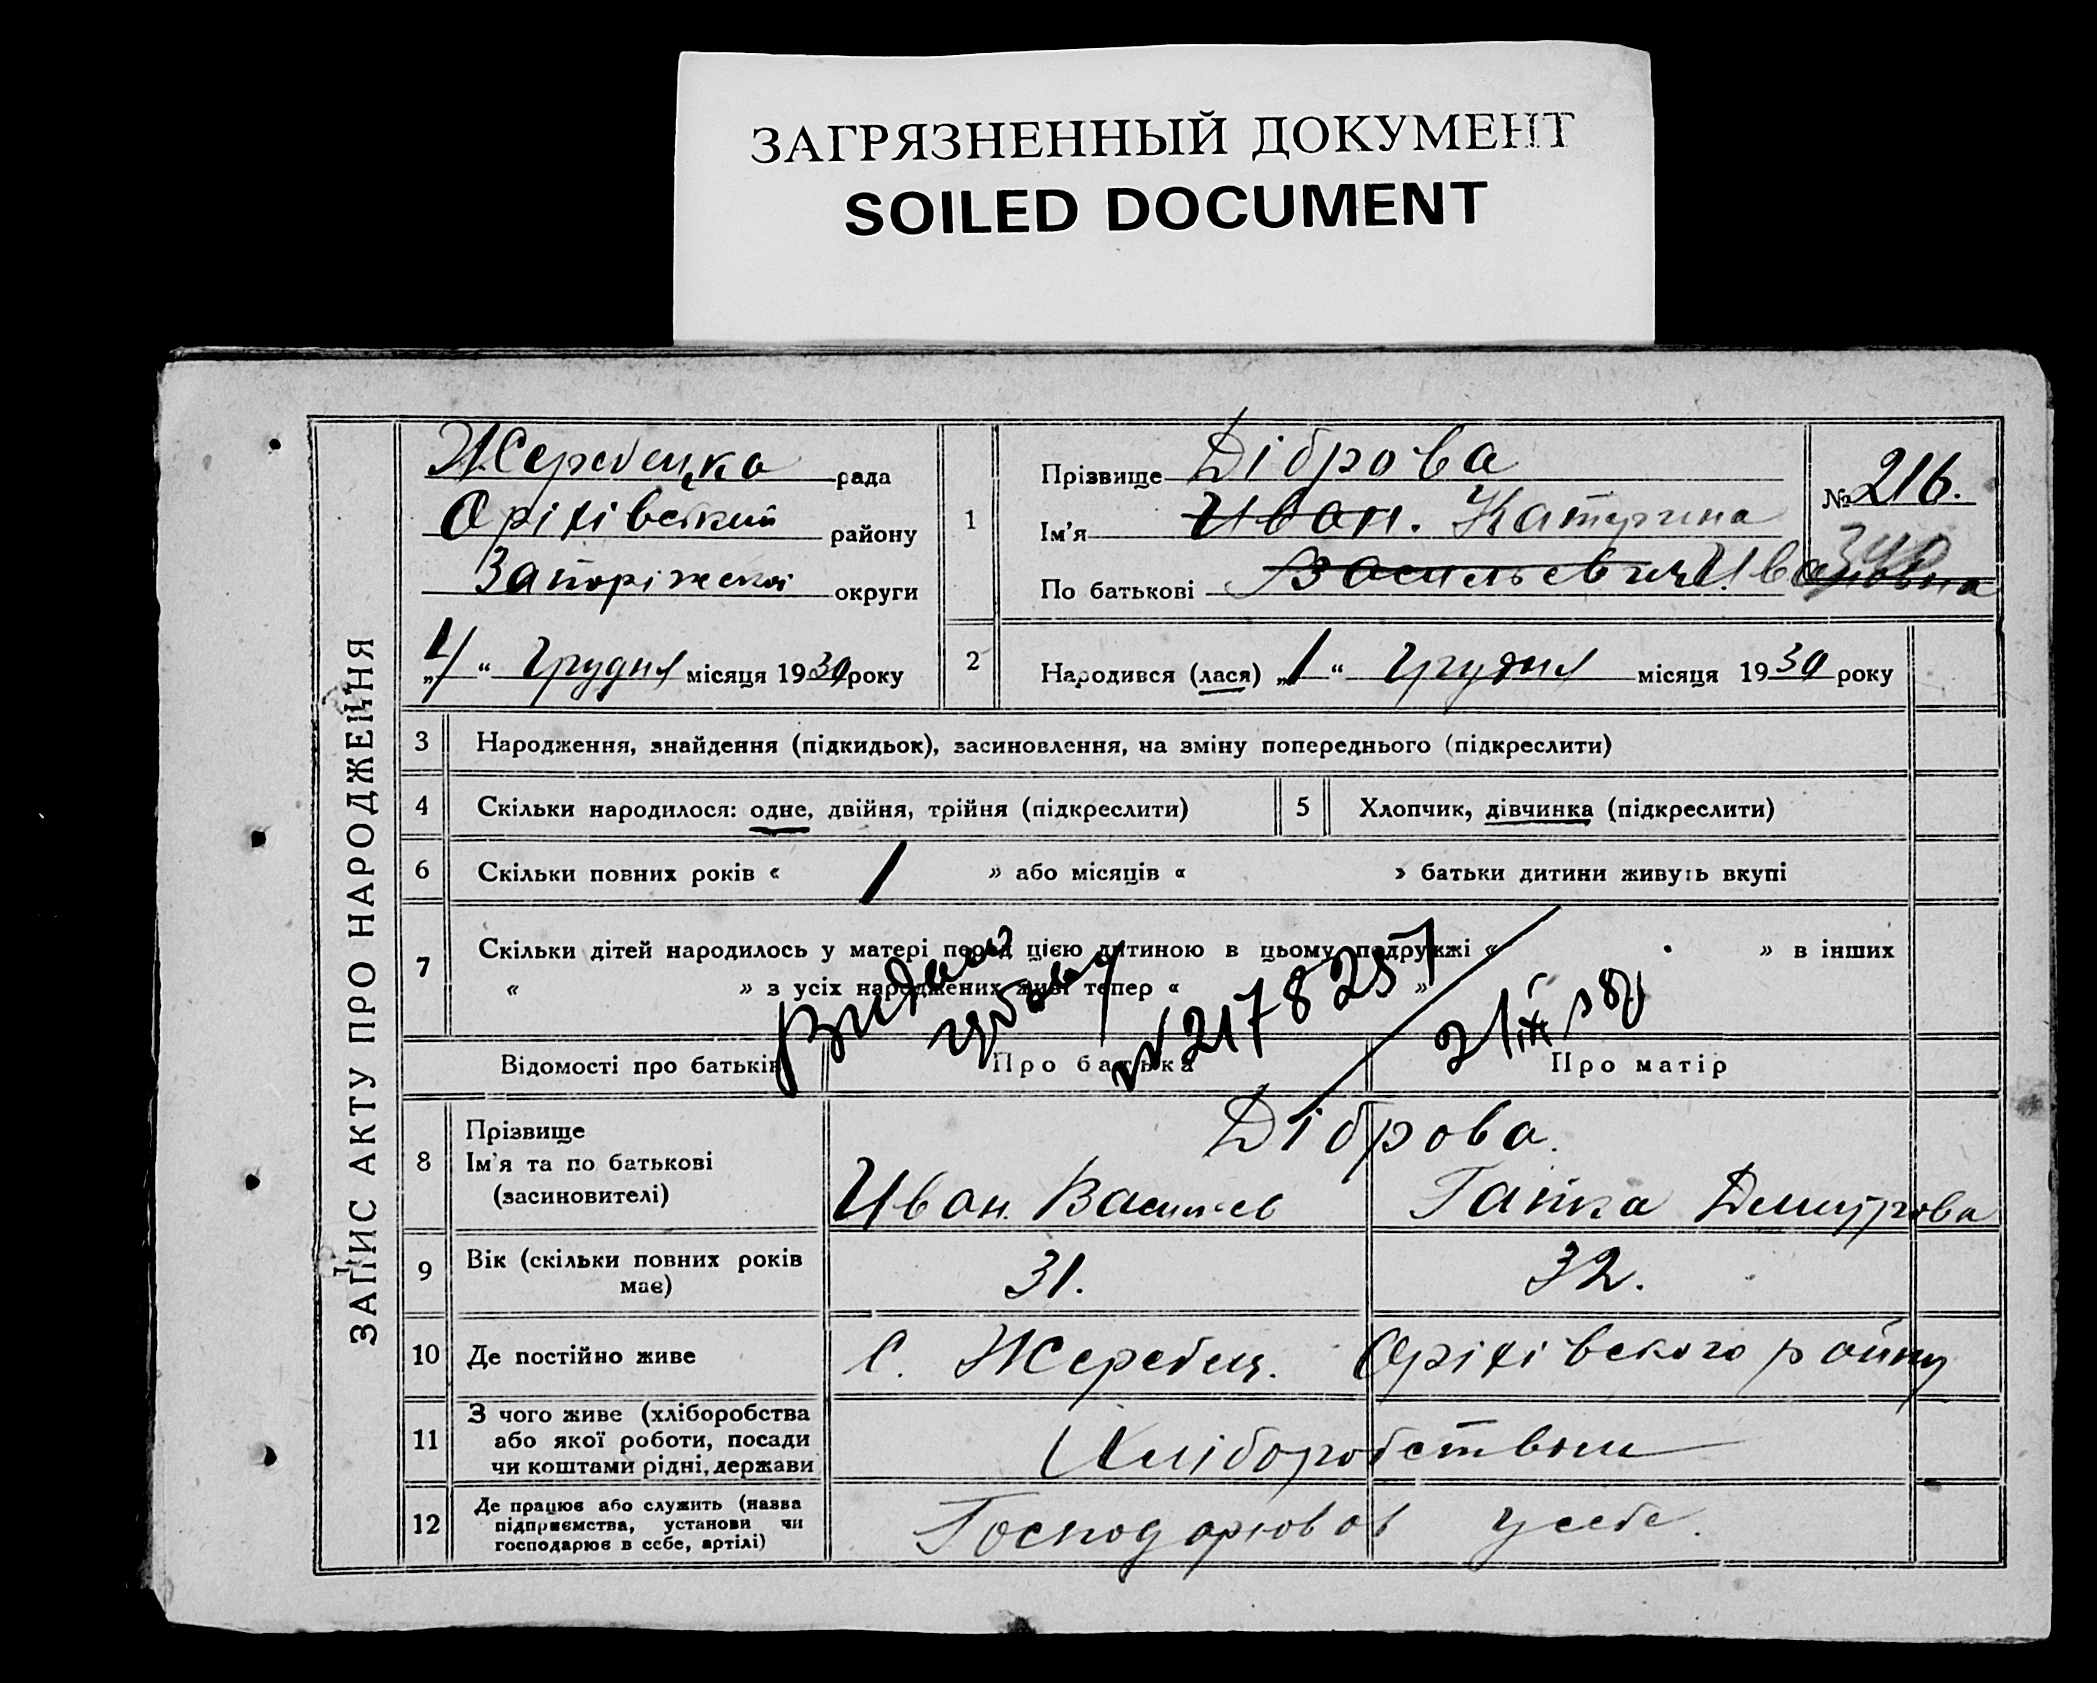 ЗАГРЯЗНЕННЫЙ ДОКУМЕНТ
SOILED DOCUMENT
ЗАПИС АКТУ ПРО НАРОДЖЕННЯ
Жеребецка рада
Оріхівський району
Запоріжской округи
„4“ Грудня місяця 1930 року
1
Прізвище Діброва
Ім'я Иван. Катерина
По батькові Васильевич Ивановна
№ 216.
340
2
Народився (лася) „1“ Грудня місяця 1930 року
3 Народження, знайдення (підкидьок), засиновлення, на зміну попереднього (підкреслити)
4 Скільки народилося: одне, двійня, трійня (підкреслити)
5 Хлопчик, дівчинка (підкреслити)
6 Скільки повних років « 1 » або місяців « » батьки дитини живуть вкупі
7 Скільки дітей народилось у матері перед цією дитиною в цьому подружжі « » в інших
« » з усіх народжених живі тепер « »
№ 217825
Відомості про батьків Про батька Про матір
8 Прізвище
Ім'я та по батькові
(засиновителі)
Діброва.
Иван Васильев Гапка Дмитрова
9 Вік (скільки повних років
має)
31. 32.
10 Де постійно живе С. Жеребец. Оріхівского району
11 З чого живе (хліборобства
або якої роботи, посади
чи коштами рідні, держави
Хліборобством
12 Де працює або служить (назва
підприємства, установи чи
господарює в себе, артілі)
Господарював у себе.